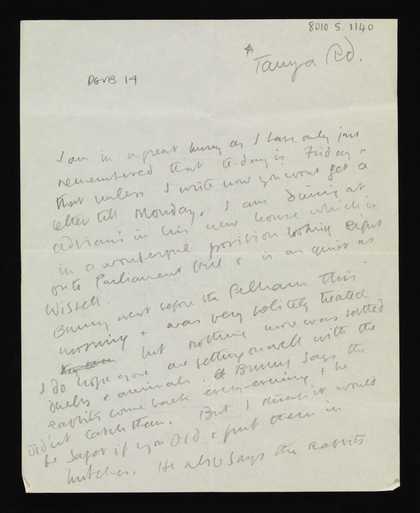 8010.5.1140
DGVB 14
Tanza Rd.
I am in a great hurry as I have only just
remembered that today is Friday &
that unless I write now you wont get a
letter till Monday. I am dining at
Adrian's in his new house which is
in a wonderful position looking right
onto Parliament Hill & is as quiet as
Wissett.
Bunny went before the Pelham this
morning & was very politely treated
but nothing more was settled
I do hope you are getting on well with the
ducks & animals. Bunny says the
rabbits come back every evening & he
didn't catch them. But I think it would
be safer if you did & put them in
hutches. He also says the rabbits